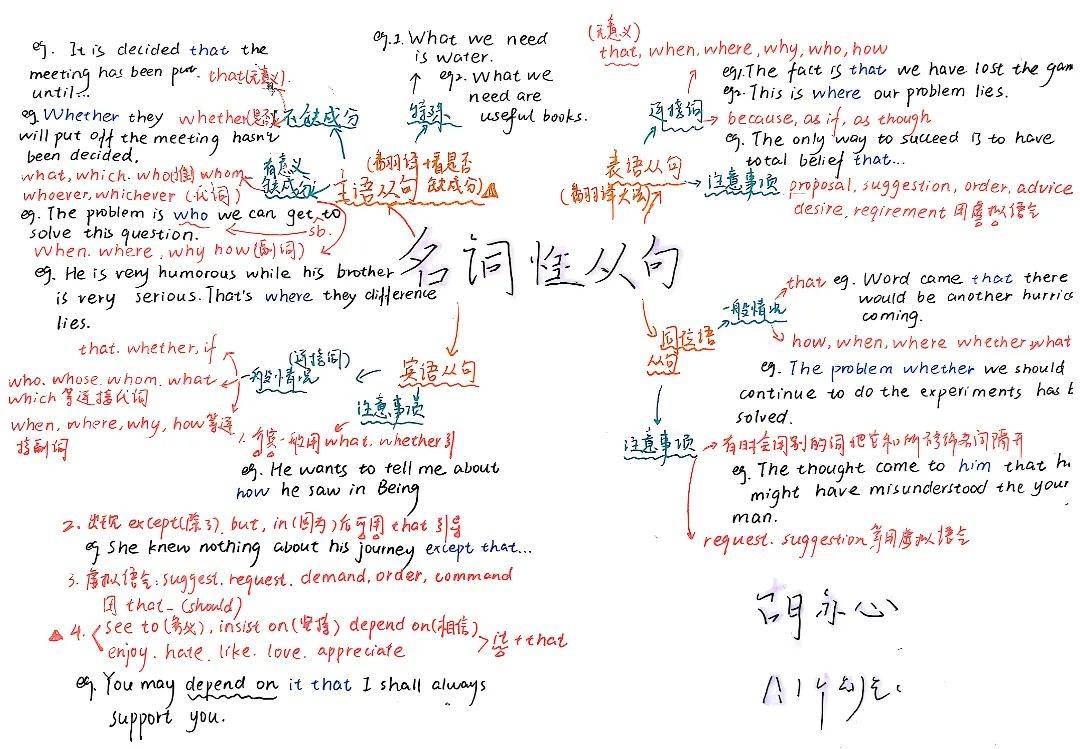 eg. It is decided that the
meeting has been put.
until...
that(无意义)
eg. Whether they
will put off the meeting hasn't
been decided,
whether(是否)
不缺成分
what, which. who(谁) whom
whoever, whichever (代词)
有意义
缺成分
eg. The problem is who we can get to
solve this question.
sb.
when. where, why how(副词)
eg. He is very humorous while his brother
is very serious. That's where they difference
lies.
eg.1. What we need
is water.
eg2. What we
need are
useful books.
特殊
主语从句
(翻译+看是否
缺成分)
名词性从句
(无意义)
that, when, where, why, who, how
eg1. The fact is that we have lost the gam
eg2. This is where our problem lies.
连接词
because, as if, as though
eg. The only way to succeed is to have
total belief that...
表语从句
注意事项
proposal, suggestion, order, advice
desire, reqirement 用虚拟语令
that
eg. Word came that there
would be another hurric
coming.
一般情况
同位语
从句
how, when, where whether, what
eg. The problem whether we should
continue to do the experiments has b
solved.
注意事项
有时会用别的词把它和所修饰名词隔开
eg. The thought came to him that h
might have misunderstood the your
man.
request. suggestion 等用虚拟语令
宾语从句
(连接词)
一般情况
that. whether, if
who. whose. whom. what
which 等连接代词
when, where, why, how 等连
接副词
注意事项
1. 介宾一般用 what. whether 引
eg. He wants to tell me about
how he saw in Being
2. 出现 except(除了), but, in(因为)后可用 that 引导
eg She knew nothing about his journey except that...
3. 虚拟语令: suggest. request. demand, order, command
用 that_ (should)
4. see to(务必), insist on(坚持) depend on(相信)
enjoy. hate. like. love. appreciate
it + that
eg. You may depend on it that I shall always
support you.